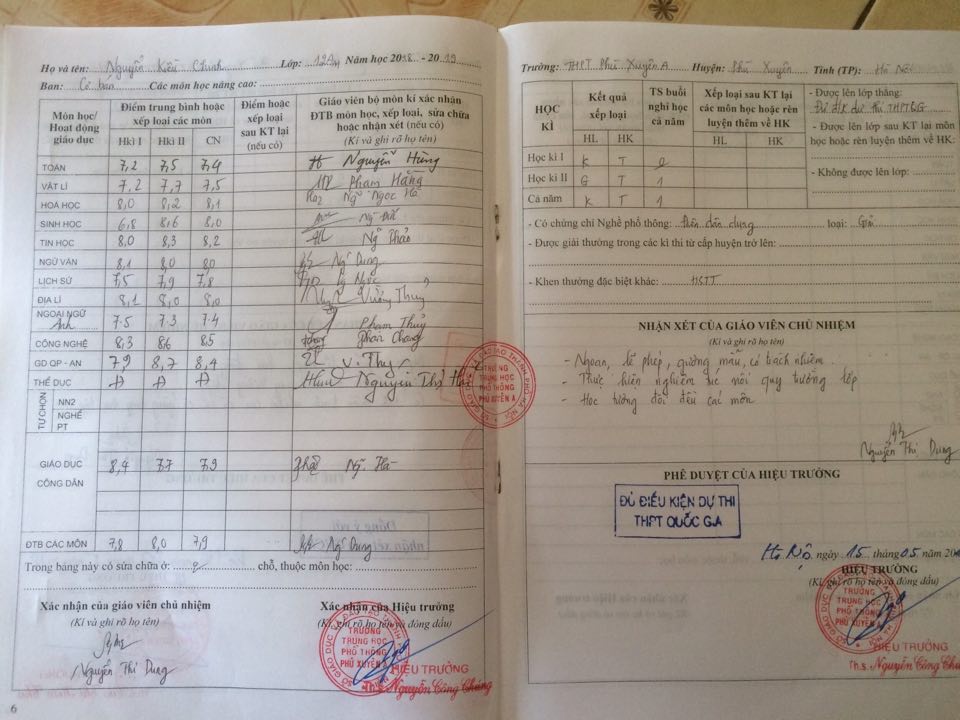 Họ và tên: Nguyễn Kiều Chinh Lớp: 12A Năm học 2018 - 2019
Ban: Cơ bản Các môn học nâng cao:
Môn học/ Hoạt động giáo dục
Điểm trung bình hoặc xếp loại các môn
Điểm hoặc xếp loại sau KT lại (nếu có)
Giáo viên bộ môn kí xác nhận ĐTB môn học, xếp loại, sửa chữa hoặc nhận xét (nếu có)
(Kí và ghi rõ họ tên)
HkI HkII CN
TOÁN 7,2 7,5 7,4 Nguyễn Hùng
VẬT LÍ 7,2 7,7 7,5 Phạm Hằng
HOÁ HỌC 8,0 8,2 8,1 Ng Ngọc Hà
SINH HỌC 6,8 8,6 8,0
TIN HỌC 8,0 8,3 8,2 Ng Thảo
NGỮ VĂN 8,1 8,0 8,0 Ng Dung
LỊCH SỬ 7,5 7,9 7,8
ĐỊA LÍ 8,1 8,0 8,0
NGOẠI NGỮ Anh 7.5 7.3 7.4 Phạm Thủy
CÔNG NGHỆ 8,3 8,6 8,5
GD QP - AN 7,9 8,7 8,4 V. Thy
THỂ DỤC Đ Đ Đ Nguyễn Thị
TỰ CHỌN
NN2
NGHỀ PT
GIÁO DỤC CÔNG DÂN 8,4 7,7 7,9 Ng Hà
ĐTB CÁC MÔN 7,8 8,0 7,9 Ng Dung
Trong bảng này có sửa chữa ở: chỗ, thuộc môn học:
Xác nhận của giáo viên chủ nhiệm
(Kí và ghi rõ họ tên)
Nguyễn Thị Dung
Xác nhận của Hiệu trưởng
(Kí, ghi rõ họ tên và đóng dấu)
TRƯỜNG
TRUNG HỌC
PHỔ THÔNG
PHÚ XUYÊN A
HIỆU TRƯỞNG
Th.s. Nguyễn Công Chúng
6
Trường: THPT Phú Xuyên A Huyện: Phú Xuyên Tỉnh (TP): Hà Nội
HỌC KÌ
Kết quả xếp loại
TS buổi nghỉ học cả năm
Xếp loại sau KT lại các môn học hoặc rèn luyện thêm về HK
HL HK HL HK
Học kì I K T 0
Học kì II G T 1
Cả năm K T 1
- Được lên lớp thẳng:
Đủ đk dự thi THPTQG
- Được lên lớp sau KT lại môn học hoặc rèn luyện thêm về HK:
- Không được lên lớp:
- Có chứng chỉ Nghề phổ thông: Điện dân dụng loại: Giỏi
- Được giải thưởng trong các kì thi từ cấp huyện trở lên:
- Khen thưởng đặc biệt khác: HSTT
NHẬN XÉT CỦA GIÁO VIÊN CHỦ NHIỆM
(Kí và ghi rõ họ tên)
- Ngoan, lễ phép, gương mẫu, có trách nhiệm.
- Thực hiện nghiêm túc nội quy trường lớp
- Học tương đối đều các môn
Nguyễn Thị Dung
PHÊ DUYỆT CỦA HIỆU TRƯỞNG
ĐỦ ĐIỀU KIỆN DỰ THI
THPT QUỐC GIA
Hà Nội, ngày 15 tháng 05 năm
HIỆU TRƯỞNG
(Kí, ghi rõ họ tên và đóng dấu)
TRƯỜNG
TRUNG HỌC
PHỔ THÔNG
PHÚ XUYÊN A
HIỆU TRƯỞNG
Th.s. Nguyễn Công Chúng
SỞ GIÁO DỤC VÀ ĐÀO TẠO THÀNH PHỐ HÀ NỘI
TRƯỜNG
TRUNG HỌC
PHỔ THÔNG
PHÚ XUYÊN A